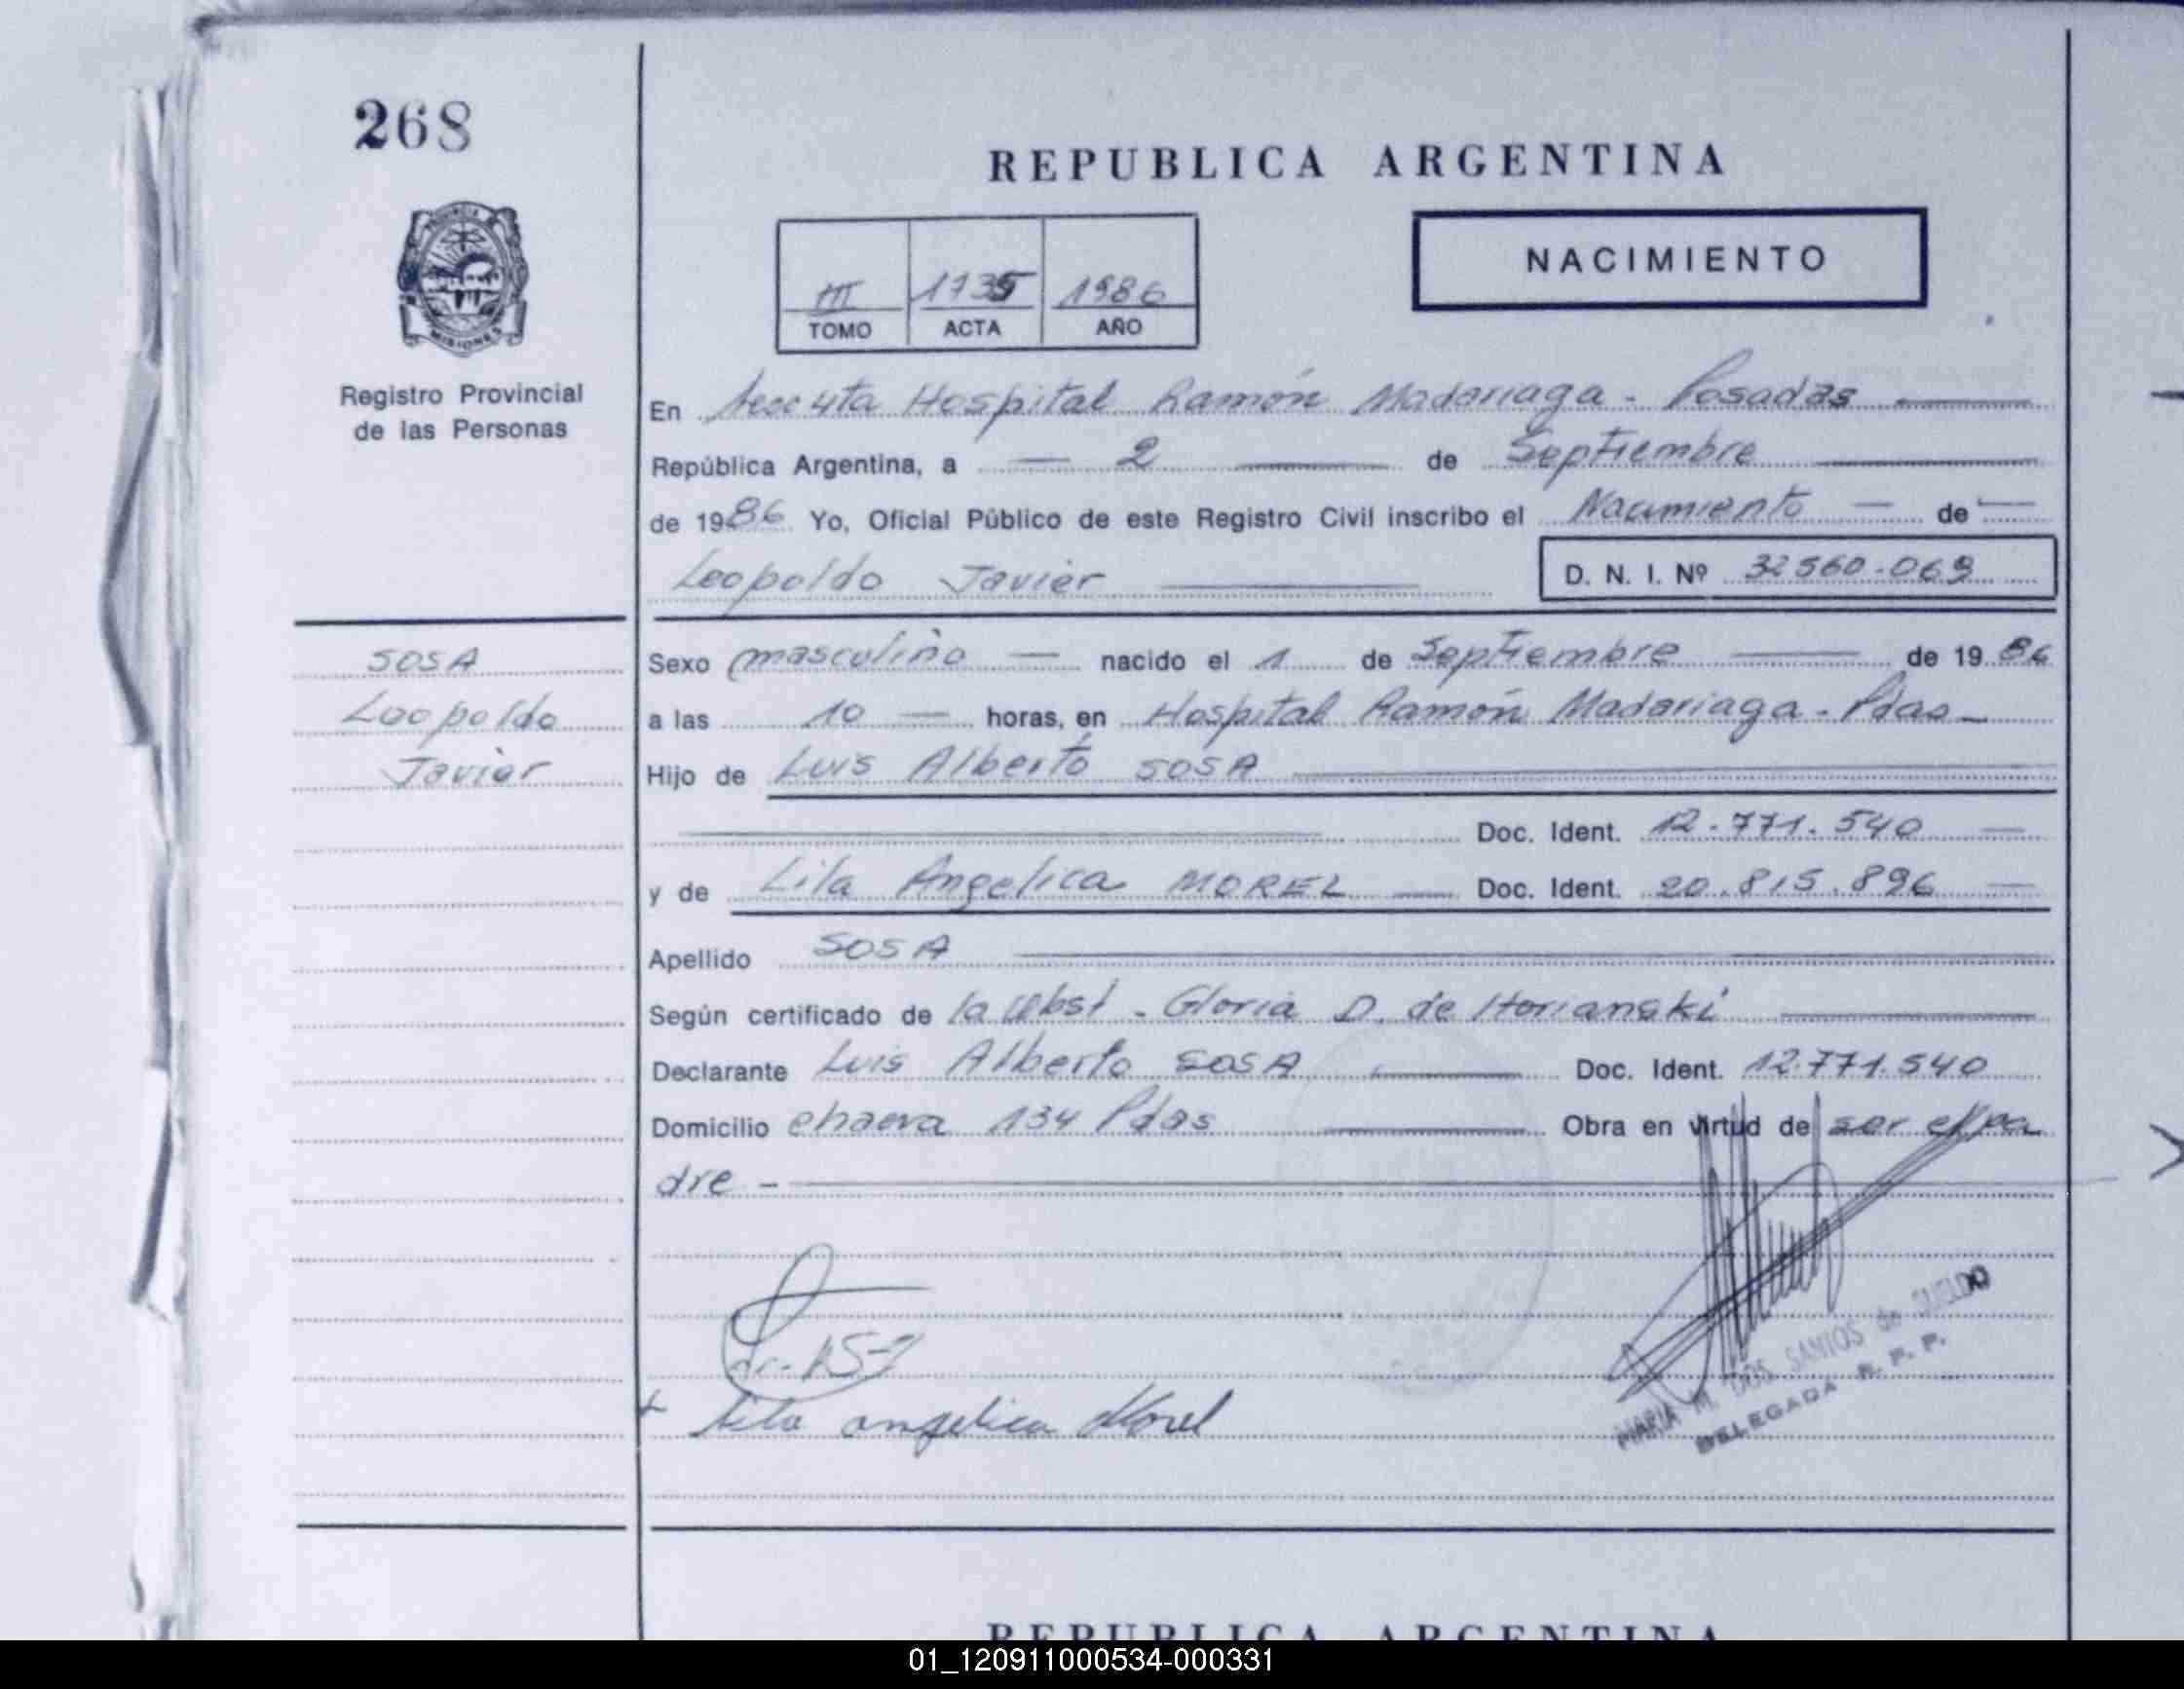 268
REPUBLICA ARGENTINA
NACIMIENTO
III 1735 1986
TOMO ACTA AÑO
PROVINCIA DE
MISIONES
Registro Provincial
de las Personas
En Hospital Ramón Madariaga - Posadas
República Argentina, a 2 de Septiembre
de 1986 Yo, Oficial Público de este Registro Civil inscribo el Nacimiento de
Leopoldo Javier D. N. I. Nº 32560.069
SOSA
Leopoldo
Javier
Sexo masculino nacido el 1 de Septiembre de 1986
a las 10 horas, en Hospital Ramón Madariaga - Pdas
Hijo de Luis Alberto SOSA
Doc. Ident. 12.771.540
y de Lila Angelica MOREL Doc. Ident. 20.815.896
Apellido SOSA
Según certificado de la Obst - Gloria D. de
Declarante Luis Alberto SOSA Doc. Ident. 12.771.540
Domicilio 134 Pdas Obra en virtud de ser el pa
dre -
Lila angelica Morel
MARIA M. DOS SANTOS de
DELEGADA R. P. P.
REPUBLICA ARGENTINA
01_120911000534-000331